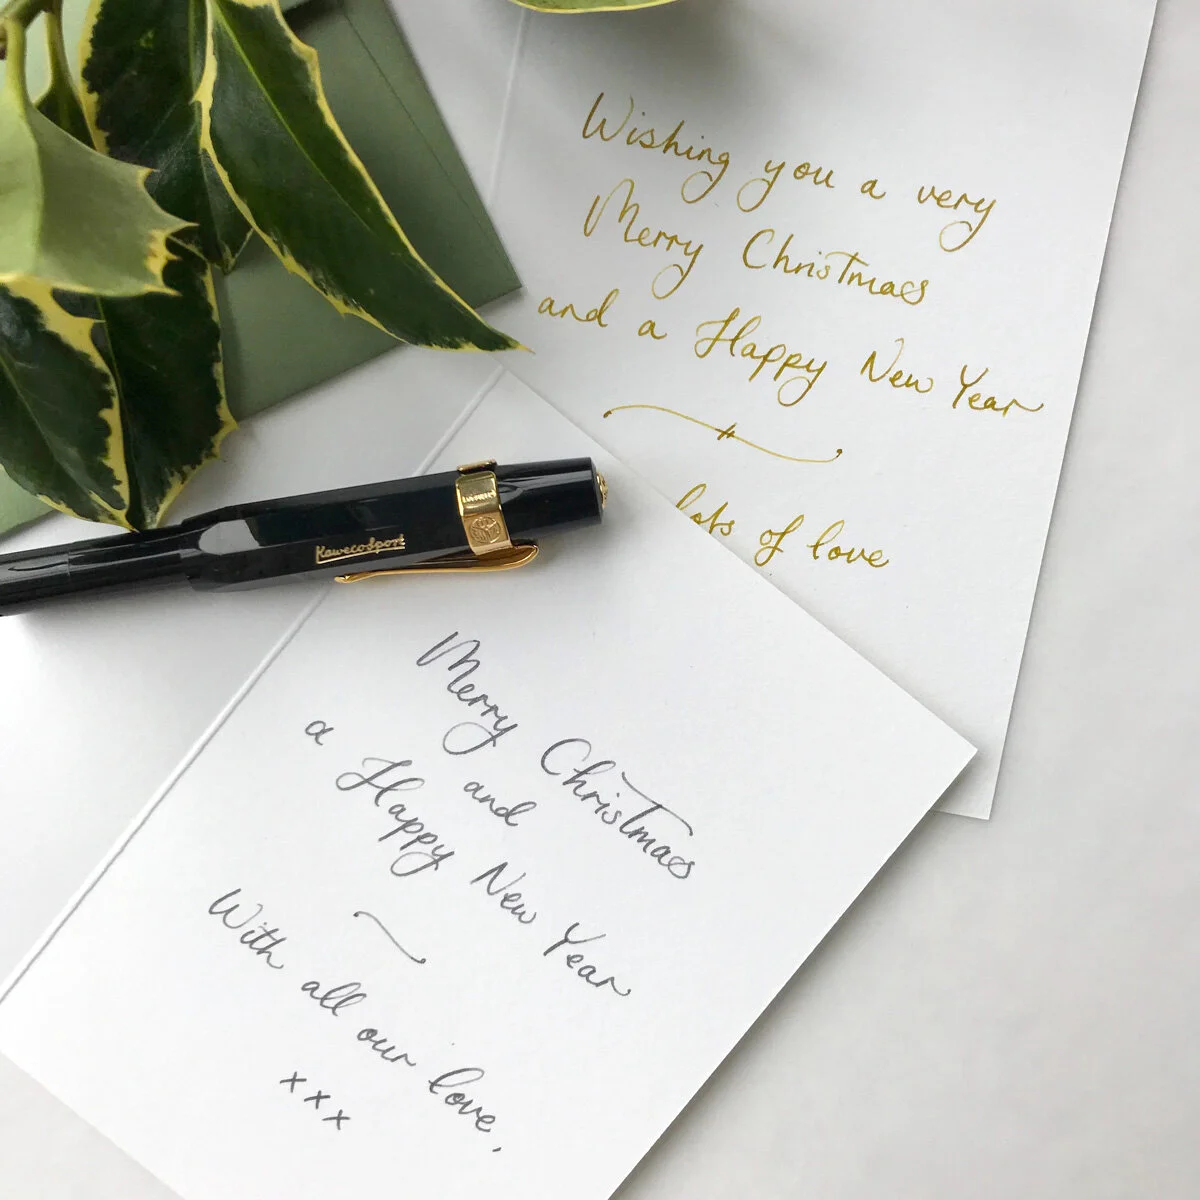 Wishing you a very
Merry Christmas
and a Happy New Year
lots of love
Kaweco Sport
Merry Christmas
and
a Happy New Year
With all our love,
xxx